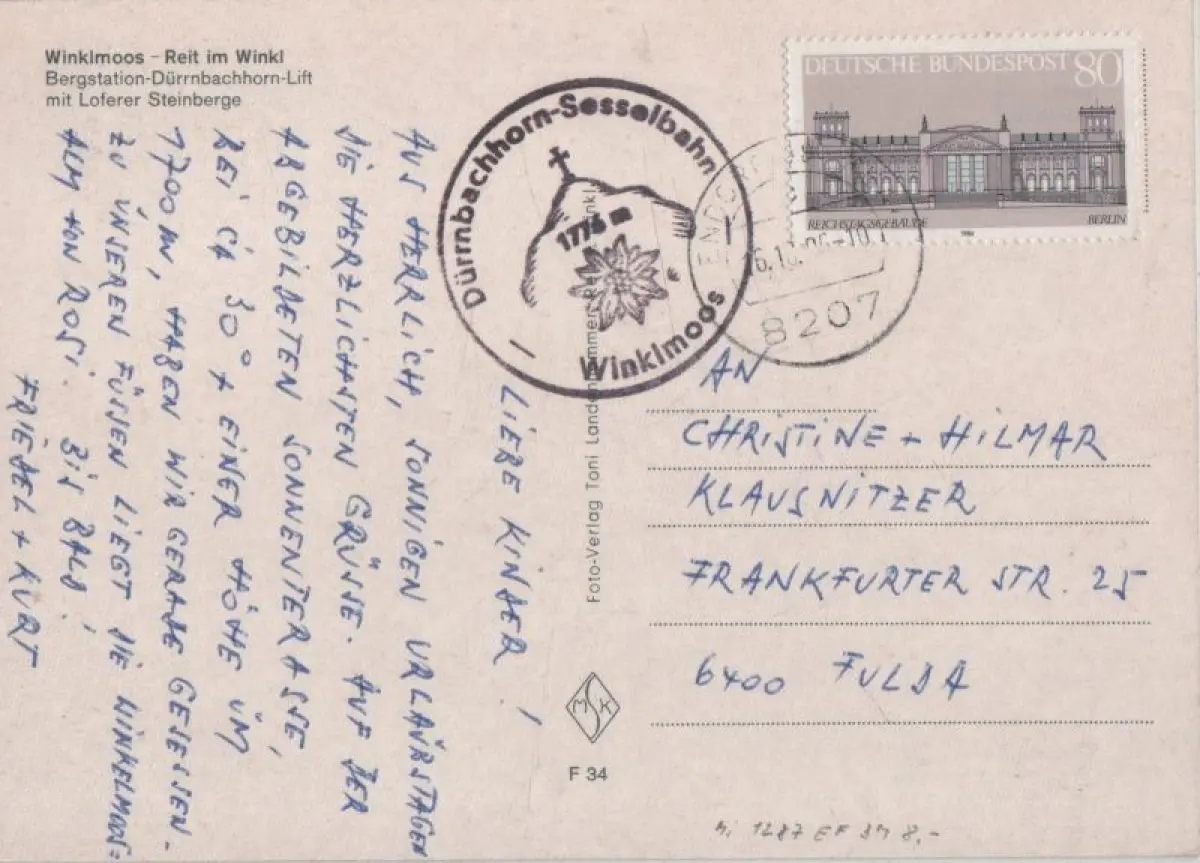 Winklmoos – Reit im Winkl
Bergstation-Dürrnbachhorn-Lift
mit Loferer Steinberge
DEUTSCHE BUNDESPOST 80
REICHSTAGSGEBÄUDE BERLIN
1986
Dürrnbachhorn-Sesselbahn
1776 m
Winklmoos
ENDORF
8207
LIEBE KINDER!
AUS HERRLICH, SONNIGEN URLAUBSTAGEN
DIE HERZLICHSTEN GRÜSSE. AUF DER
ABGEBILDETEN SONNENTERASSE,
BEI CA 30° + EINER HÖHE UM
1700 m, HABEN WIR GERADE GESESSEN.
ZU UNSEREN FÜSSEN LIEGT DIE WINKELMOOS=
ALM VON ROSI. BIS BALD!
FRIEDEL + KURT
Foto-Verlag Toni
AN
CHRISTINE + HILMAR
KLAUSNITZER
FRANKFURTER STR. 25
6400 FULDA
MSK
F 34
Mi 1287 EF 8,-